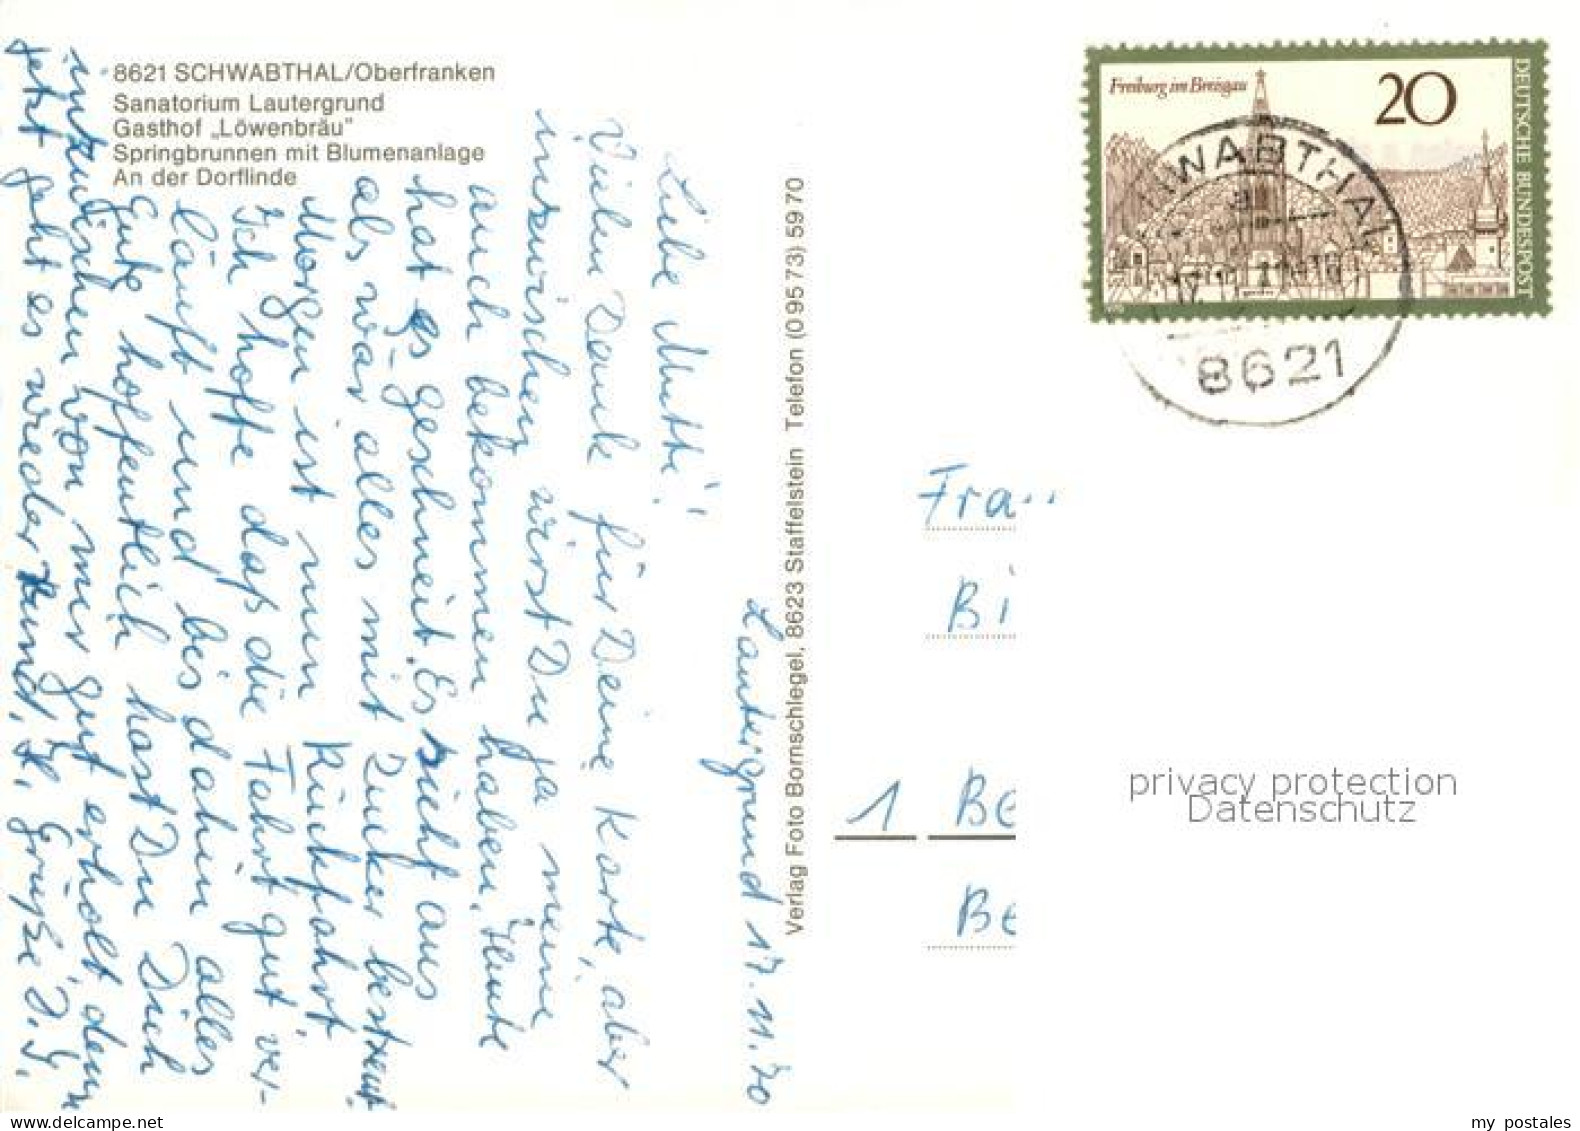 8621 SCHWABTHAL/Oberfranken
Sanatorium Lautergrund
Gasthof „Löwenbräu"
Springbrunnen mit Blumenanlage
An der Dorflinde
Lautergrund 17.11.70
Liebe Mutti!
Vielen Dank für Deine Karte, aber
inzwischen wirst Du ja meine
auch bekommen haben. Heute
hat es geschneit. Es sieht aus
als wär alles mit Zucker bestreut.
Morgen ist nun Rückfahrt
Ich hoffe daß die Fahrt gut ver-
läuft und bis dahin alles
Gute hoffentlich hast Du Dich
inzwischen von mir gut erholt, denn
jetzt geht es wieder rund. H. Grüße D. G.
Verlag Foto Bornschlegel, 8623 Staffelstein Telefon (0 95 73) 59 70
Freiburg im Breisgau
20
DEUTSCHE BUNDESPOST
HWABTHAL
8621
Fra
Bi
1 Be
Be
privacy protection
Datenschutz
my postales